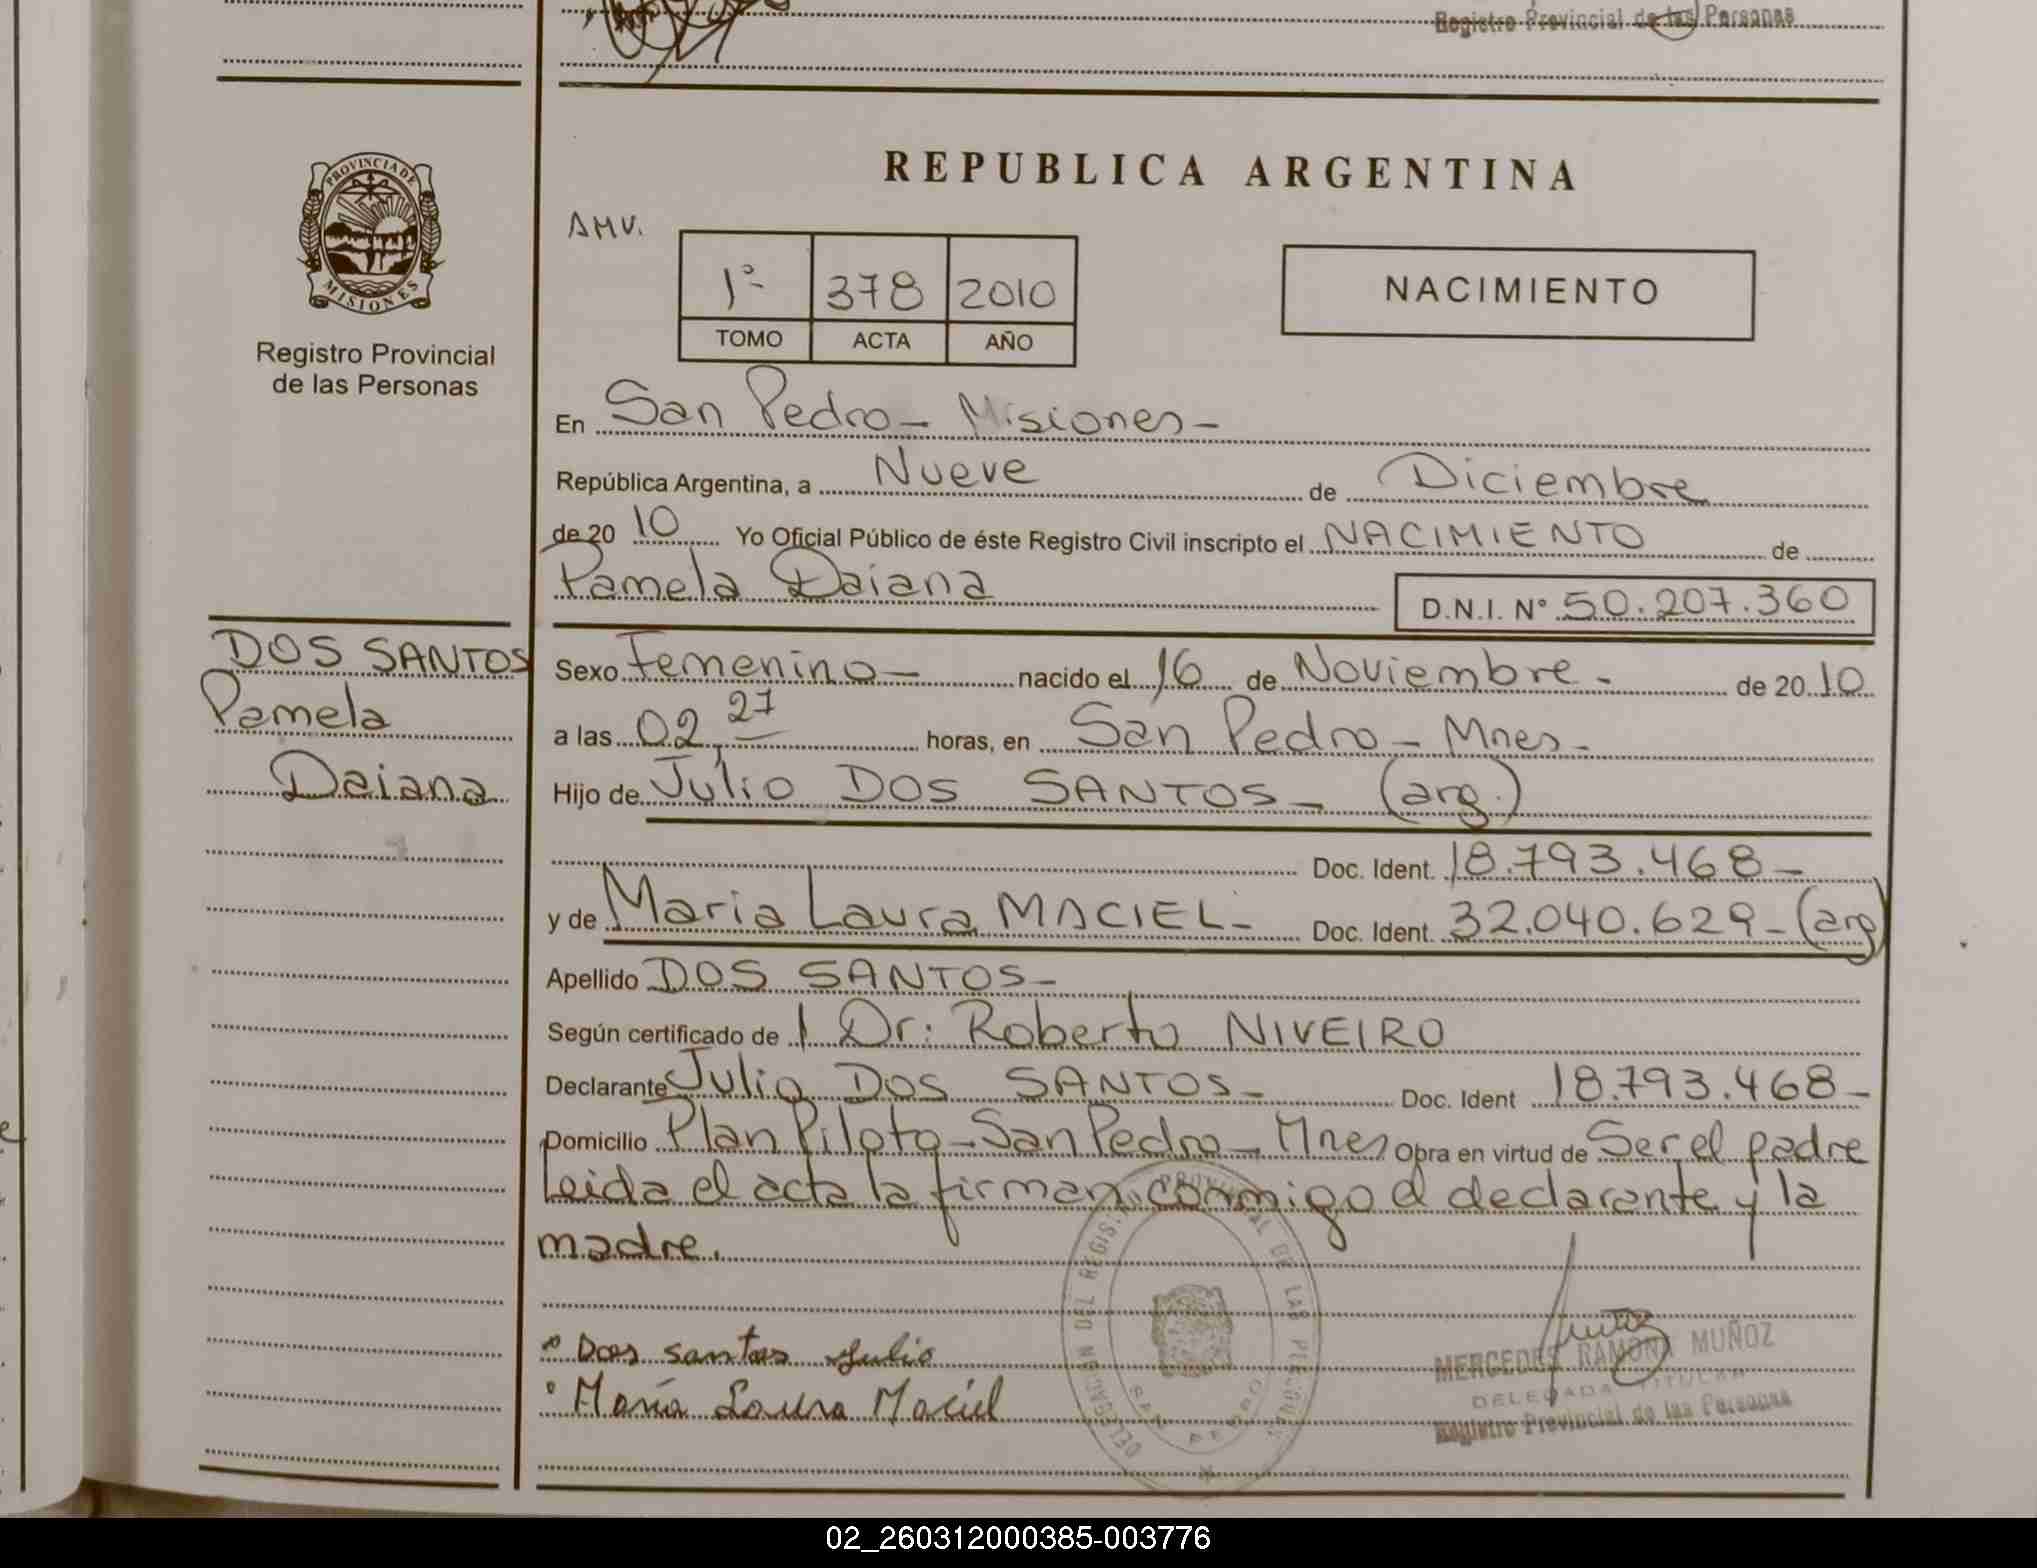 Registro Provincial de las Personas
PROVINCIA DE
MISIONES
Registro Provincial
de las Personas
REPUBLICA ARGENTINA
AMV.
1º 378 2010
TOMO ACTA AÑO
NACIMIENTO
En San Pedro - Misiones -
República Argentina, a Nueve de Diciembre
de 20 10 Yo Oficial Público de éste Registro Civil inscripto el NACIMIENTO de
Pamela Daiana D.N.I. Nº 50.207.360
DOS SANTOS
Pamela
Daiana
Sexo Femenino - nacido el 16 de Noviembre - de 20 10
a las 02,27 horas, en San Pedro - Mnes -
Hijo de Julio DOS SANTOS - (arg.)
Doc. Ident. 18.793.468 -
y de Maria Laura MACIEL - Doc. Ident. 32.040.629 - (arg)
Apellido DOS SANTOS -
Según certificado de 1 Dr: Roberto NIVEIRO
Declarante Julio DOS SANTOS - Doc. Ident 18.793.468 -
Domicilio Plan Piloto - San Pedro - Mnes Obra en virtud de Ser el padre
Leida el acta la firman conmigo el declarante y la
madre.
DELEGACION DEL REGISTRO PROVINCIAL DE LAS PERSONAS
SAN PEDRO
Dos santos Julio
María Laura Maciel
MERCEDES RAMONA MUÑOZ
DELEGADA TITULAR
Registro Provincial de las Personas
02_260312000385-003776